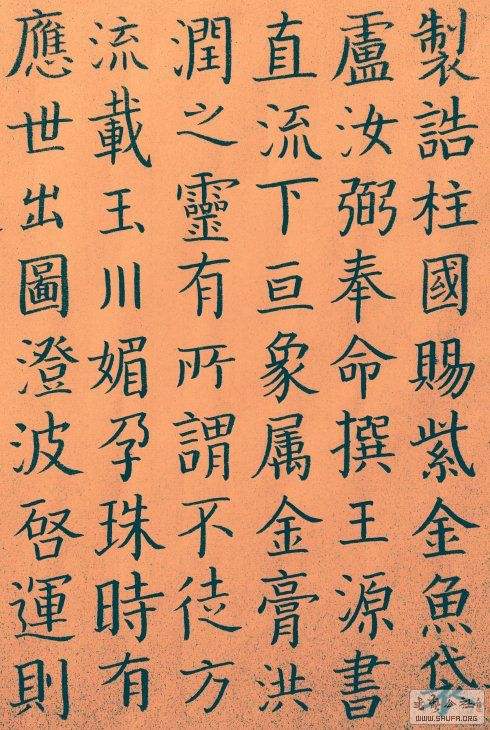 製誥柱國賜紫金魚袋
盧汝弼奉命撰王源書
直流下亘象属金膏洪
潤之靈有所謂不徒方
流載玉川媚孕珠時有
應世出圖澄波啓運則
WWW.SHUFA.ORG